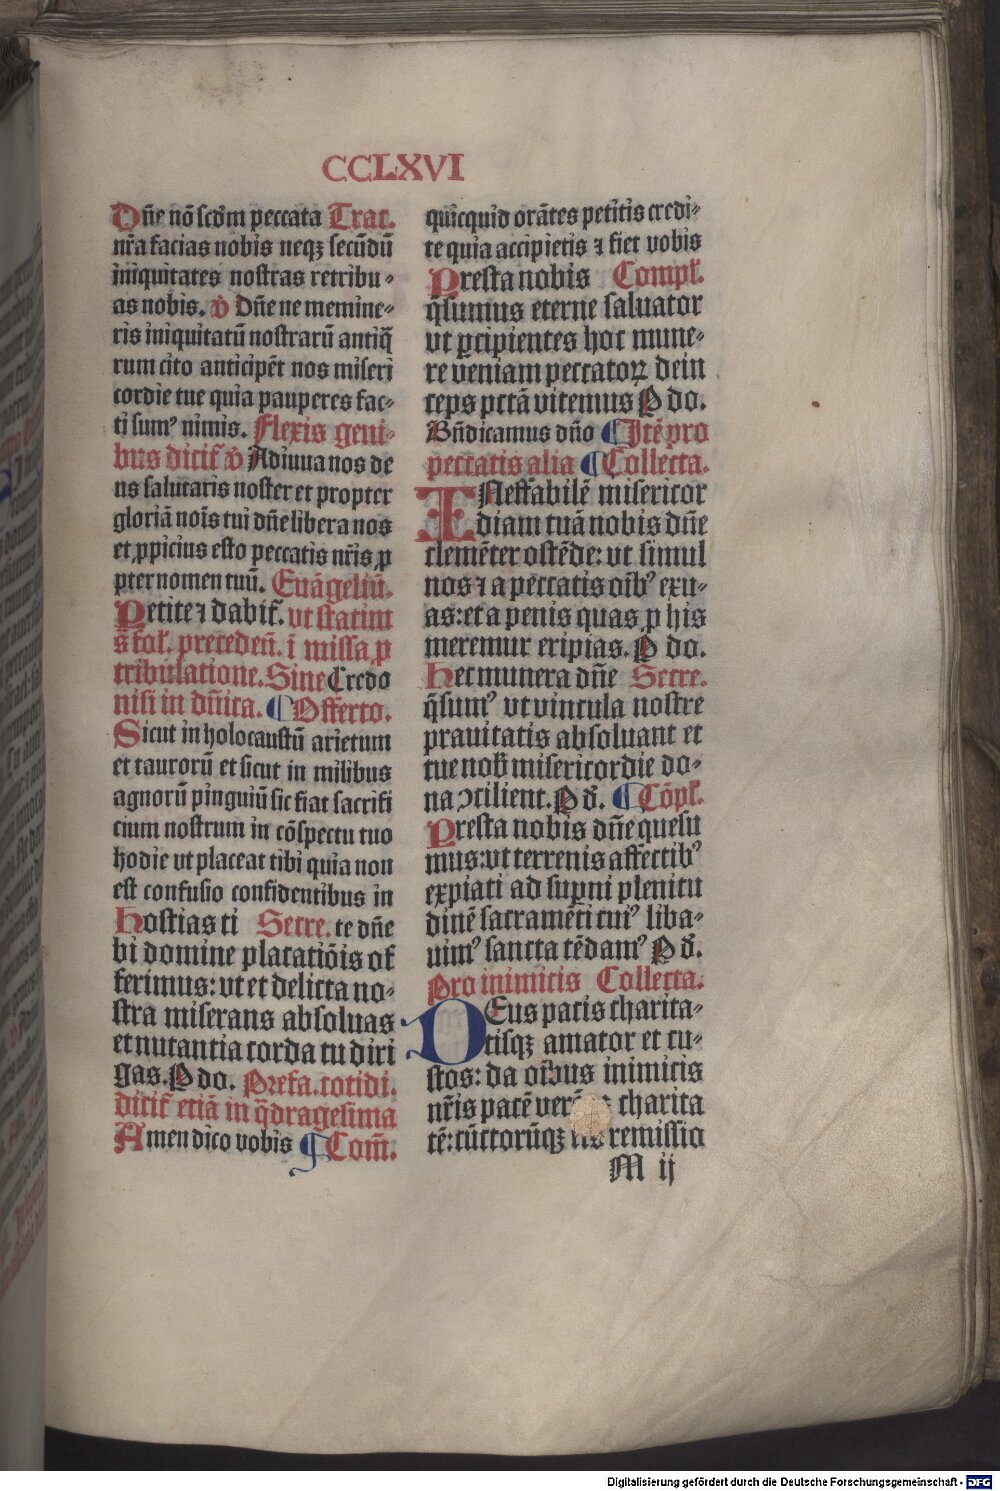 CCLXVI
Dñe nõ scd̃m peccata Trac.
nr̃a facias nobis neqꝫ secũdũ
iniquitates nostras retribu-
as nobis. ꝟ Dñe ne memine-
ris iniquitatũ nostrarũ antiq̃
rum cito anticipẽt nos miseri
cordie tue quia pauperes fac-
ti sumꝰ nimis. Flexis geni-
bus dicit᷑ ꝟ Adiuua nos de
us salutaris noster et propter
gloriã noĩs tui dñe libera nos
et ꝓpicius esto peccatis nr̃is ꝓ
pter nomen tuũ. Euãgeliũ.
Petite ⁊ dabit᷑. vt statim
s̃ fol᷑. precedeñ. ĩ missa ꝓ
tribulatione. Sine Credo
nisi in dñica. ¶ Offerto.
Sicut in holocaustũ arietum
et taurorũ et sicut in milibus
agnorũ pinguiũ sic fiat sacrifi
cium nostrum in cõspectu tuo
hodie vt placeat tibi quia non
est confusio confidentibus in
Hostias ti Secre. te dñe
bi domine placatiõis of
ferimus: vt et delicta no-
stra miserans absoluas
et nutantia corda tu diri
gas. P do. Prefa. cotidi.
dicit᷑ etiã in q̃dragesima
Amen dico vobis ¶ Com̃.
quicquid orãtes petitis credi-
te quia accipietis ⁊ fiet vobis
Presta nobis Compl᷑.
q̃sumus eterne saluator
vt ꝑcipientes hoc mune-
re veniam peccatoꝝ dein
ceps pctã vitemus P do.
Bñdicamus dño ¶ Itẽ pro
peccatis alia ¶ Collecta.
INeffabilẽ misericor
diam tuã nobis dñe
clemẽter ostẽde: vt simul
nos ⁊ a peccatis oĩbꝰ exu-
as: et a penis quas ꝓ his
meremur eripias. P do.
Hec munera dñe Secre.
q̃sumꝰ vt vincula nostre
prauitatis absoluant et
tue nob̃ misericordie do-
na ↄcilient. P d̃. ¶ Cõpl᷑.
Presta nobis dñe quesu
mus: vt terrenis affectibꝰ
expiati ad suꝑni plenitu
dinẽ sacramẽti cuiꝰ liba-
uimꝰ sancta tẽdamꝰ P d̃.
Pro inimicis Collecta.
DEus pacis charita-
tisqꝫ amator et cu-
stos: da oĩbus inimicis
nr̃is pacẽ charita
tẽ: cũctorũqꝫ remissio
M ij
Digitalisierung gefördert durch die Deutsche Forschungsgemeinschaft - DFG